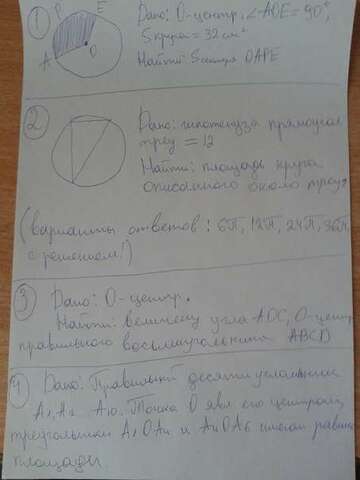 1
P E
A O
Дано: О-центр, ∠AOE=90°,
Sкруга=32см²
Найти: Sсектора OAPE
2
Дано: гипотенуза прямоугол
треу =12
Найти: площадь круга
описанного около треу?
(варианты ответов: 6π, 12π, 24π, 36π
с решением!)
3 Дано: О-центр.
Найти: величину угла AOC, О-центр
правильного восьмиугольника ABCD
4 Дано: Правильный десятиугольник
A₁A₂ A₁₀. Точка О явл его центром,
треугольники и имеют равные
площади.